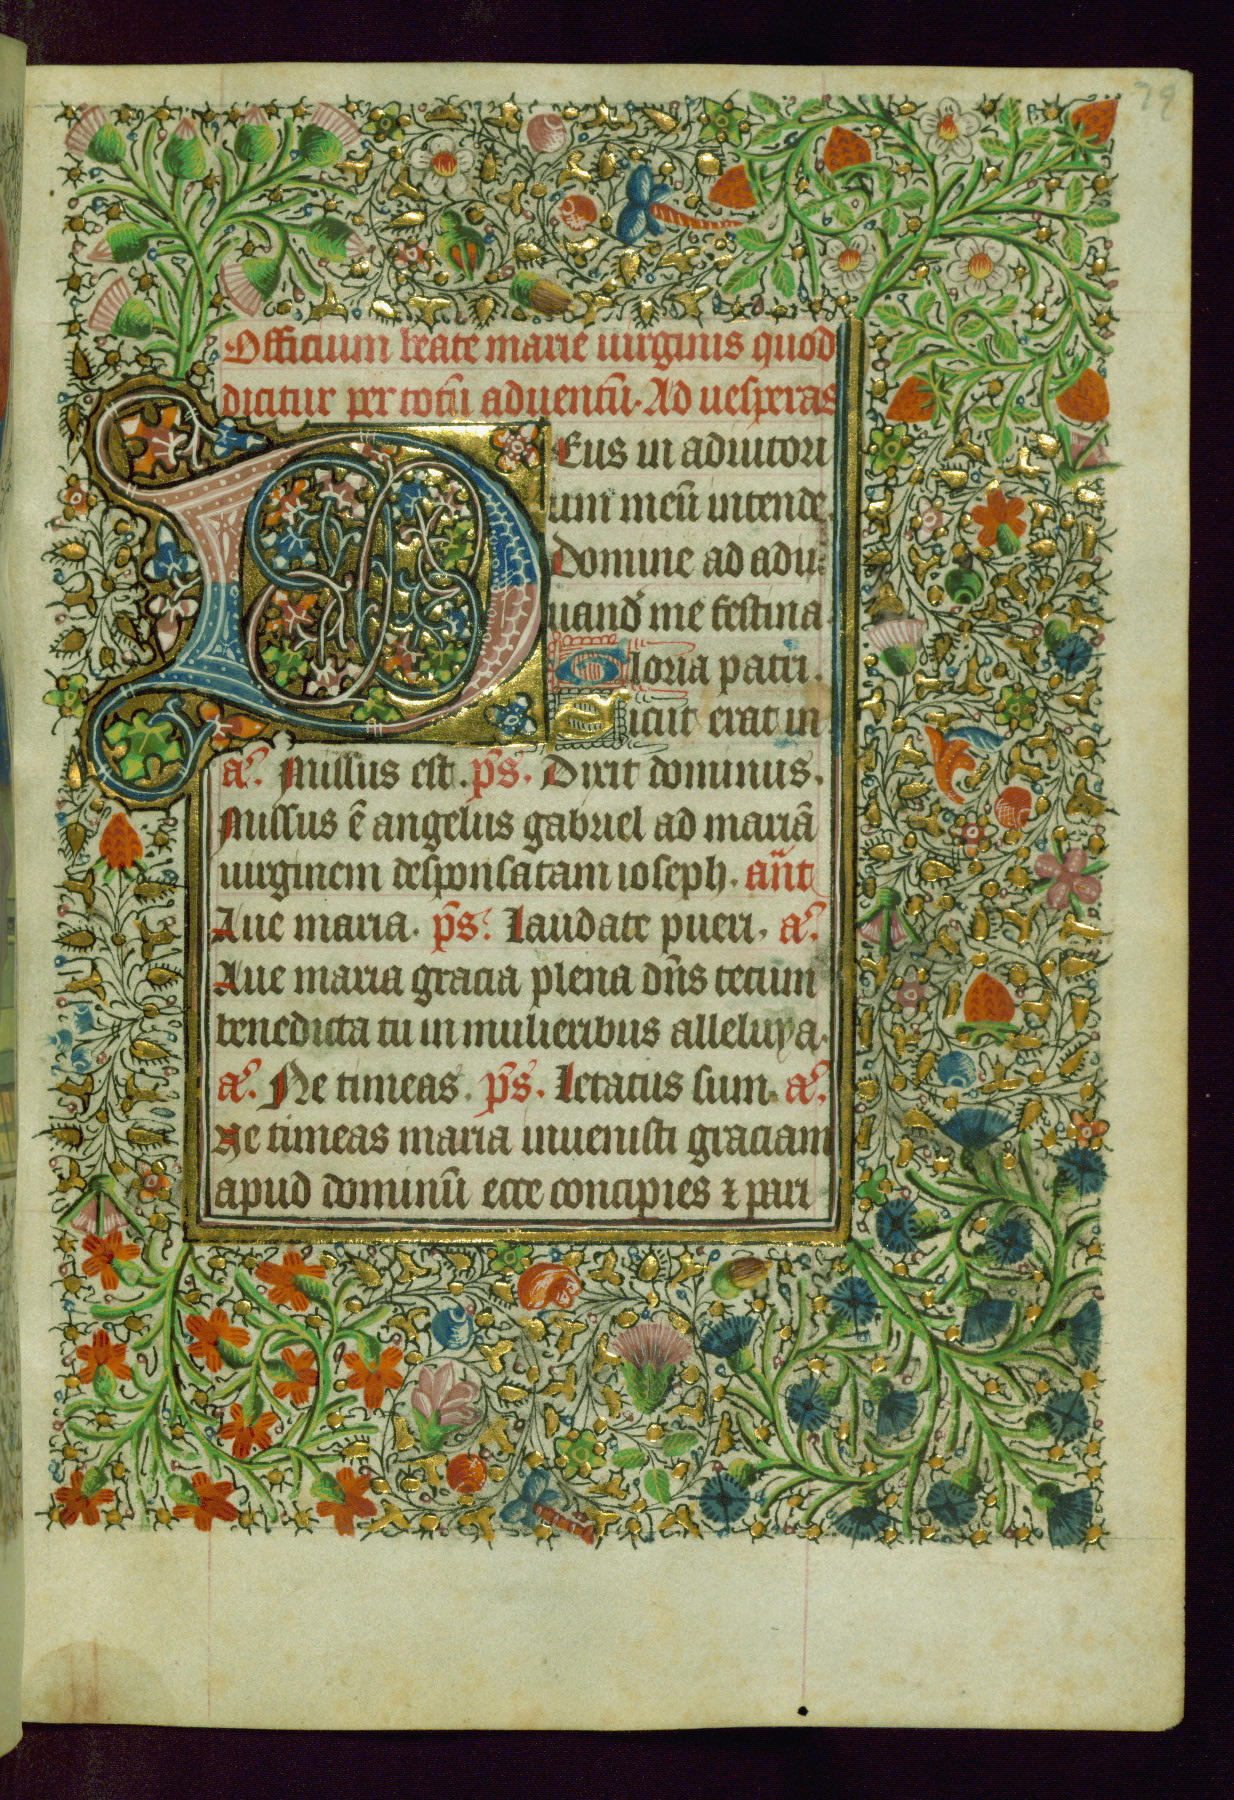 79
Officium beate marie uirginis quod
dicitur per totū aduentū. Ad uesperas
DEus in adiutori
um meū intende
Domine ad adiu
uand' me festina.
Gloria patri.
Sicut erat in
a. Missus est. ps. Dixit dominus.
Missus ē angelus gabriel ad mariā
uirginem desponsatam ioseph. ant
Aue maria. ps. Laudate pueri. a.
Aue maria gracia plena dn̄s tecum
benedicta tu in mulieribus alleluya.
a. Ne timeas. ps. Letatus sum. a.
Ne timeas maria inuenisti graciam
apud dominū ecce concipies ⁊ pari